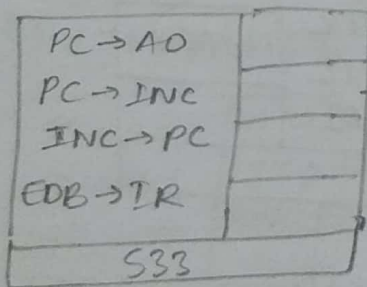 PC→AO
PC→INC
INC→PC
EDB→IR
533